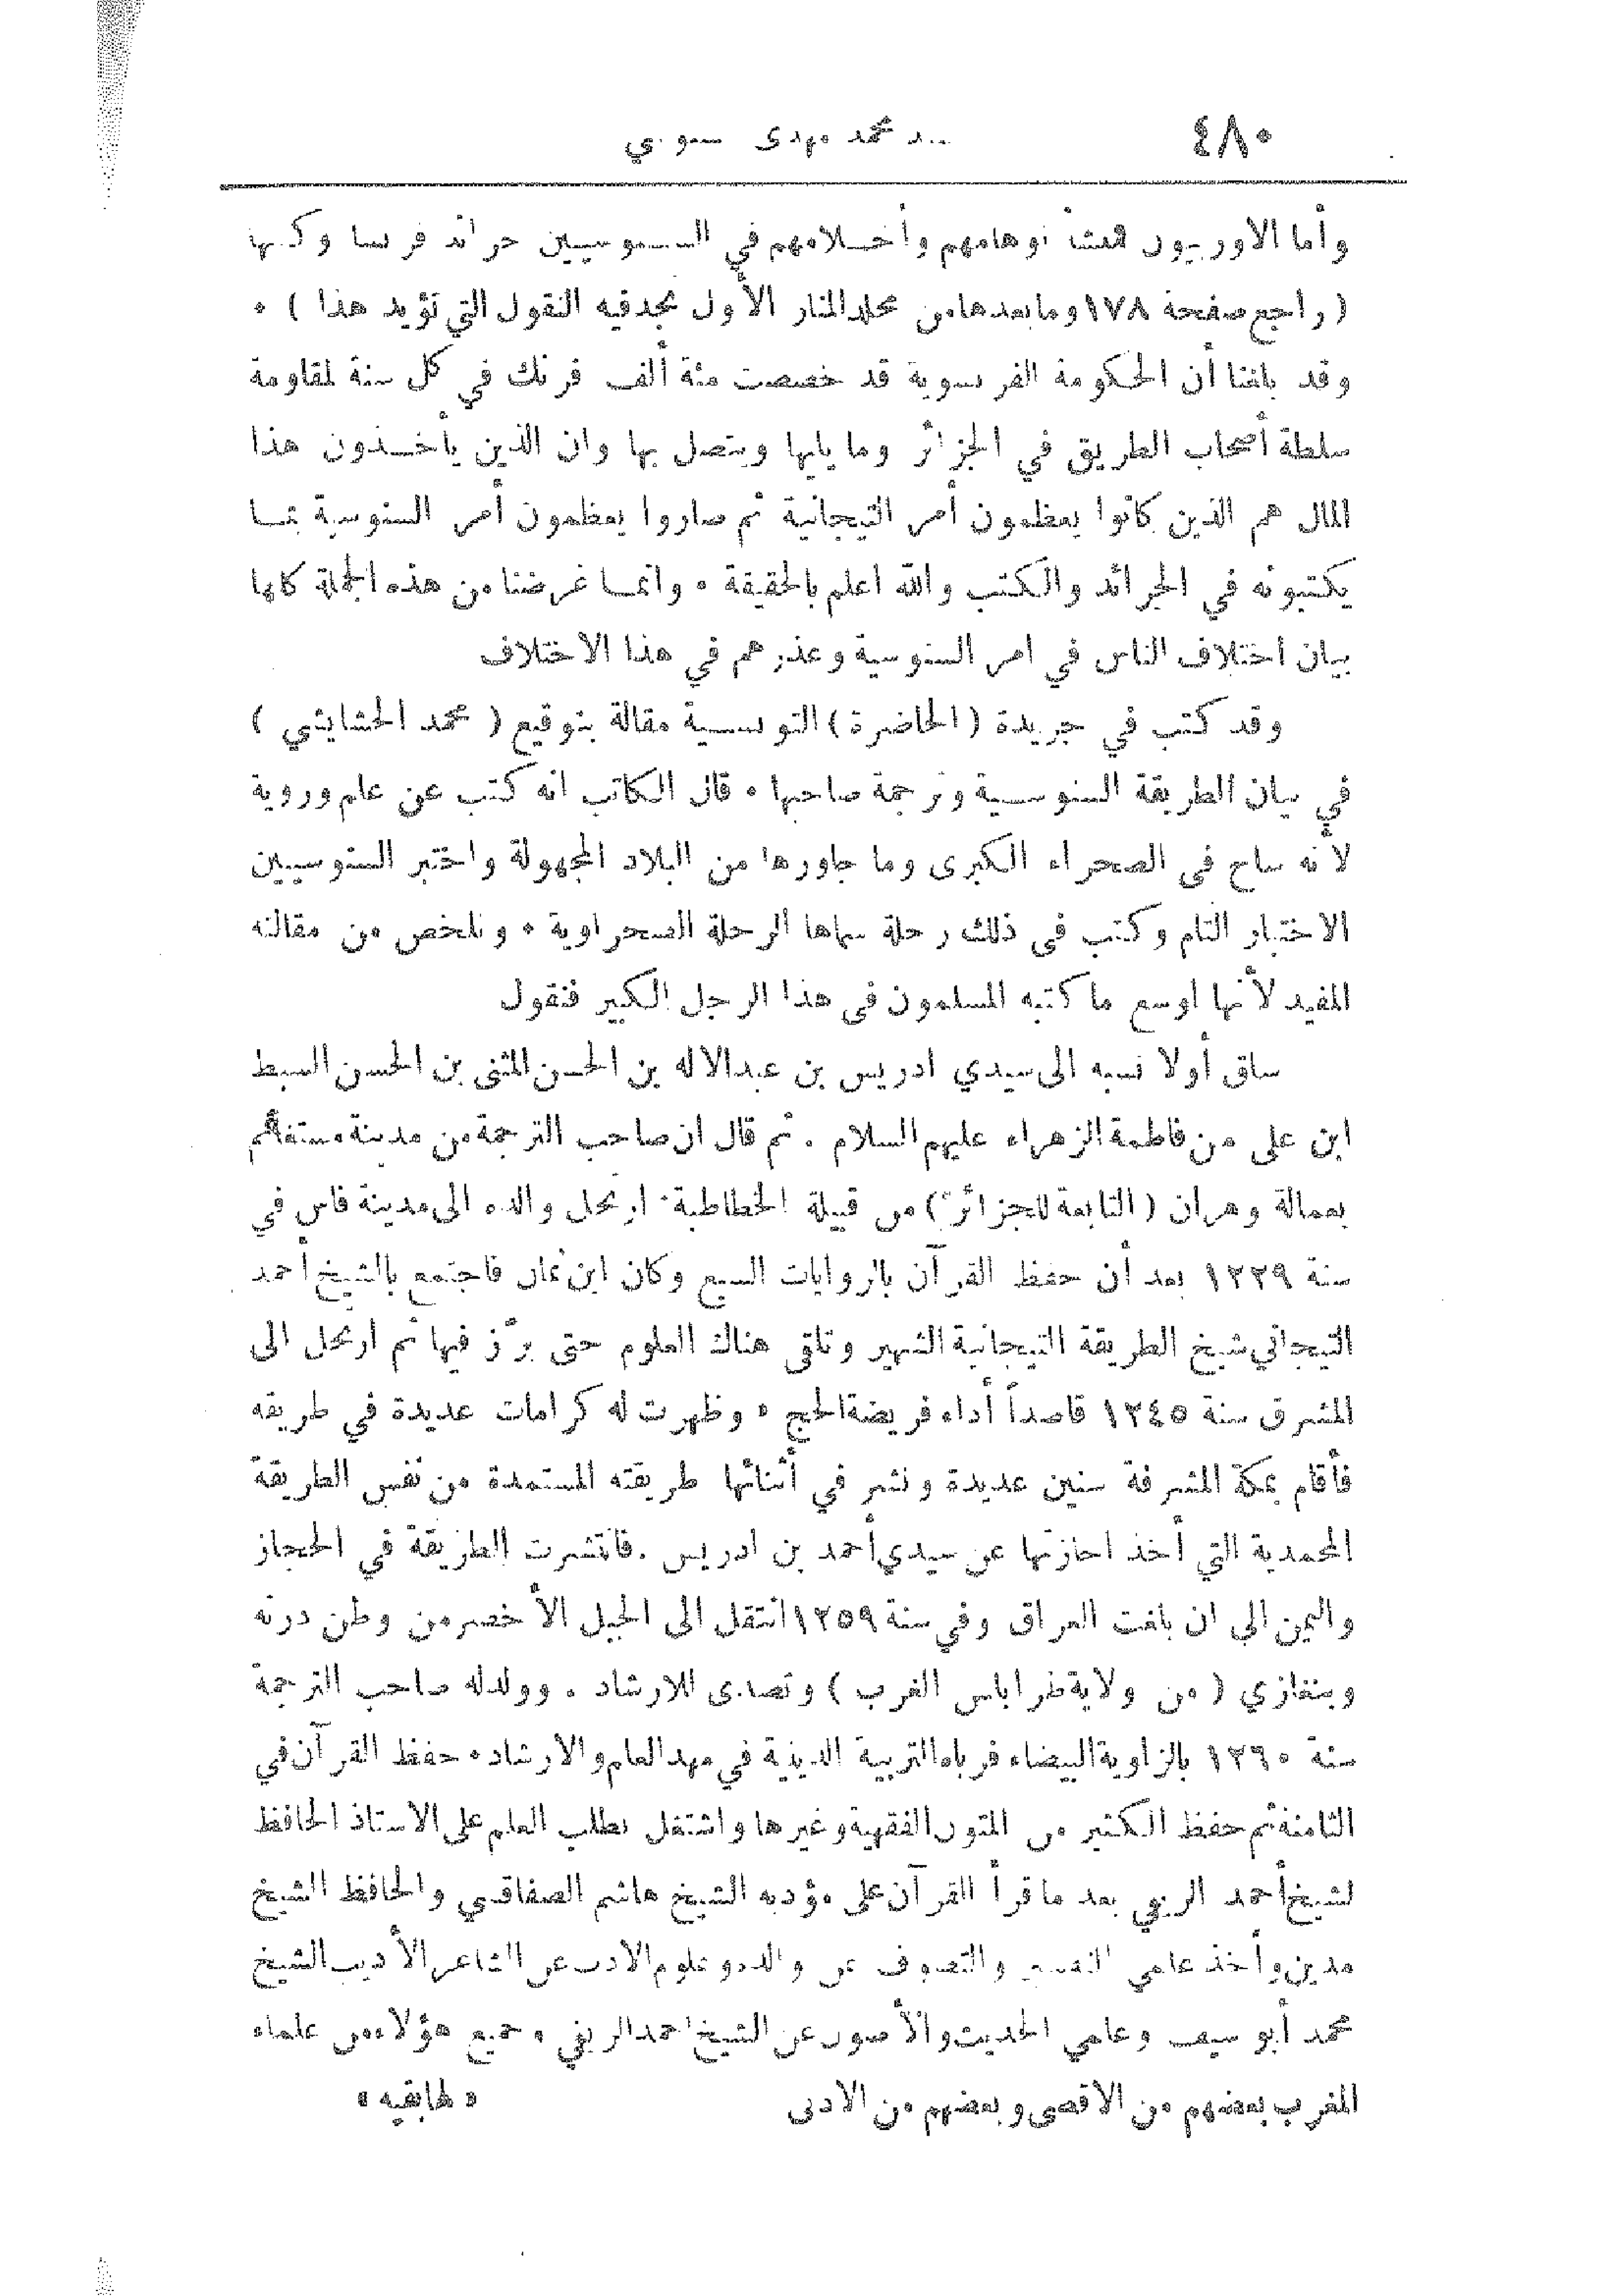 ٤٨٠ محمد مهدى
وأما الاوربيون أوهامهم وأحـلامهم في السنوسيين جرائد فرنسا وكتبها
( راجع صفحة ١٧٨ وما بعدها من مجلد المنار الأول تجد فيه النقول التي تؤيد هذا ) ٠
وقد بلغنا أن الحكومة الفرنسوية قد خصصت مئة ألف فرنك في كل سنة لمقاومة
سلطة أصحاب الطريق في الجزائر وما يليها ويتصل بها وان الذين يأخـذون هذا
المال هم الذين كانوا يعظمون أمر التيجانية ثم صاروا يعظمون أمر السنوسية بمـا
يكتبونه في الجرائد والكتب والله اعلم بالحقيقة ٠ وانمـا غرضنا من هذه الجملة كلها
بيان اختلاف الناس في امر السنوسية وعذرهم في هذا الاختلاف
وقد كتب في جريدة ( الحاضرة ) التونسـية مقالة بتوقيع ( محمد الحشايشي )
في بيان الطريقة السنوسـية وترجمة صاحبها ٠ قال الكاتب انه كتب عن علم وروية
لأنه ساح في الصحراء الكبرى وما جاورها من البلاد المجهولة واختبر السنوسيين
الاختبار التام وكتب في ذلك رحلة سماها الرحلة الصحراوية ٠ ونلخص من مقالته
المفيد لأنها اوسع ما كتبه المسلمون في هذا الرجل الكبير فنقول
ساق أولا نسبه الى سيدي ادريس بن عبدالاله بن الحسن المثنى بن الحسن السبط
ابن على من فاطمة الزهراء عليهم السلام . ثم قال ان صاحب الترجمة من مدينة مستغانم
بعمالة وهران ( التابعة للجزائر ) من قبيلة الخطاطبة ارتحل والده الى مدينة فاس في
سنة ١٢٢٩ بعد أن حفظ القرآن بالروايات السبع وكان ابن ثمان فاجتمع بالشيخ أحمد
التيجاني شيخ الطريقة التيجانية الشهير وتلقى هناك العلوم حتى برّز فيها ثم ارتحل الى
المشرق سنة ١٢٤٥ قاصداً أداء فريضة الحج ٠ وظهرت له كرامات عديدة في طريقه
فأقام بمكة المشرفة سنين عديدة ونشر في أثنائها طريقته المستمدة من نفس الطريقة
المحمدية التي أخذ اجازتها عن سيدي أحمد بن ادريس . فانتشرت الطريقة في الحجاز
واليمن الى ان بلغت العراق وفي سنة ١٢٥٩ انتقل الى الجبل الأخضر من وطن درنه
وبنغازي ( من ولاية طرابلس الغرب ) وتصدى للارشاد . وولدله صاحب الترجمة
سنة ١٢٦٠ بالزاوية البيضاء فرباه التربية الدينية في مهد العلم والارشاد ٠ حفظ القرآن في
الثامنة ثم حفظ الكثير من المتون الفقهية وغيرها واشتغل بطلب العلم على الاستاذ الحافظ
لشيخ أحمد الريفي بعد ما قرأ القرآن على مؤدبه الشيخ هاشم الصفاقسي والحافظ الشيخ
مدين وأخذ علمي التفسير والتصوف عن والده وعلوم الادب عن الشاعر الأديب الشيخ
محمد أبو سيف وعلمي الحديث والأصول عن الشيخ احمد الريفي ٠ وجميع هؤلاء من علماء
المغرب بعضهم من الاقصى وبعضهم من الادنى « لهابقيه »